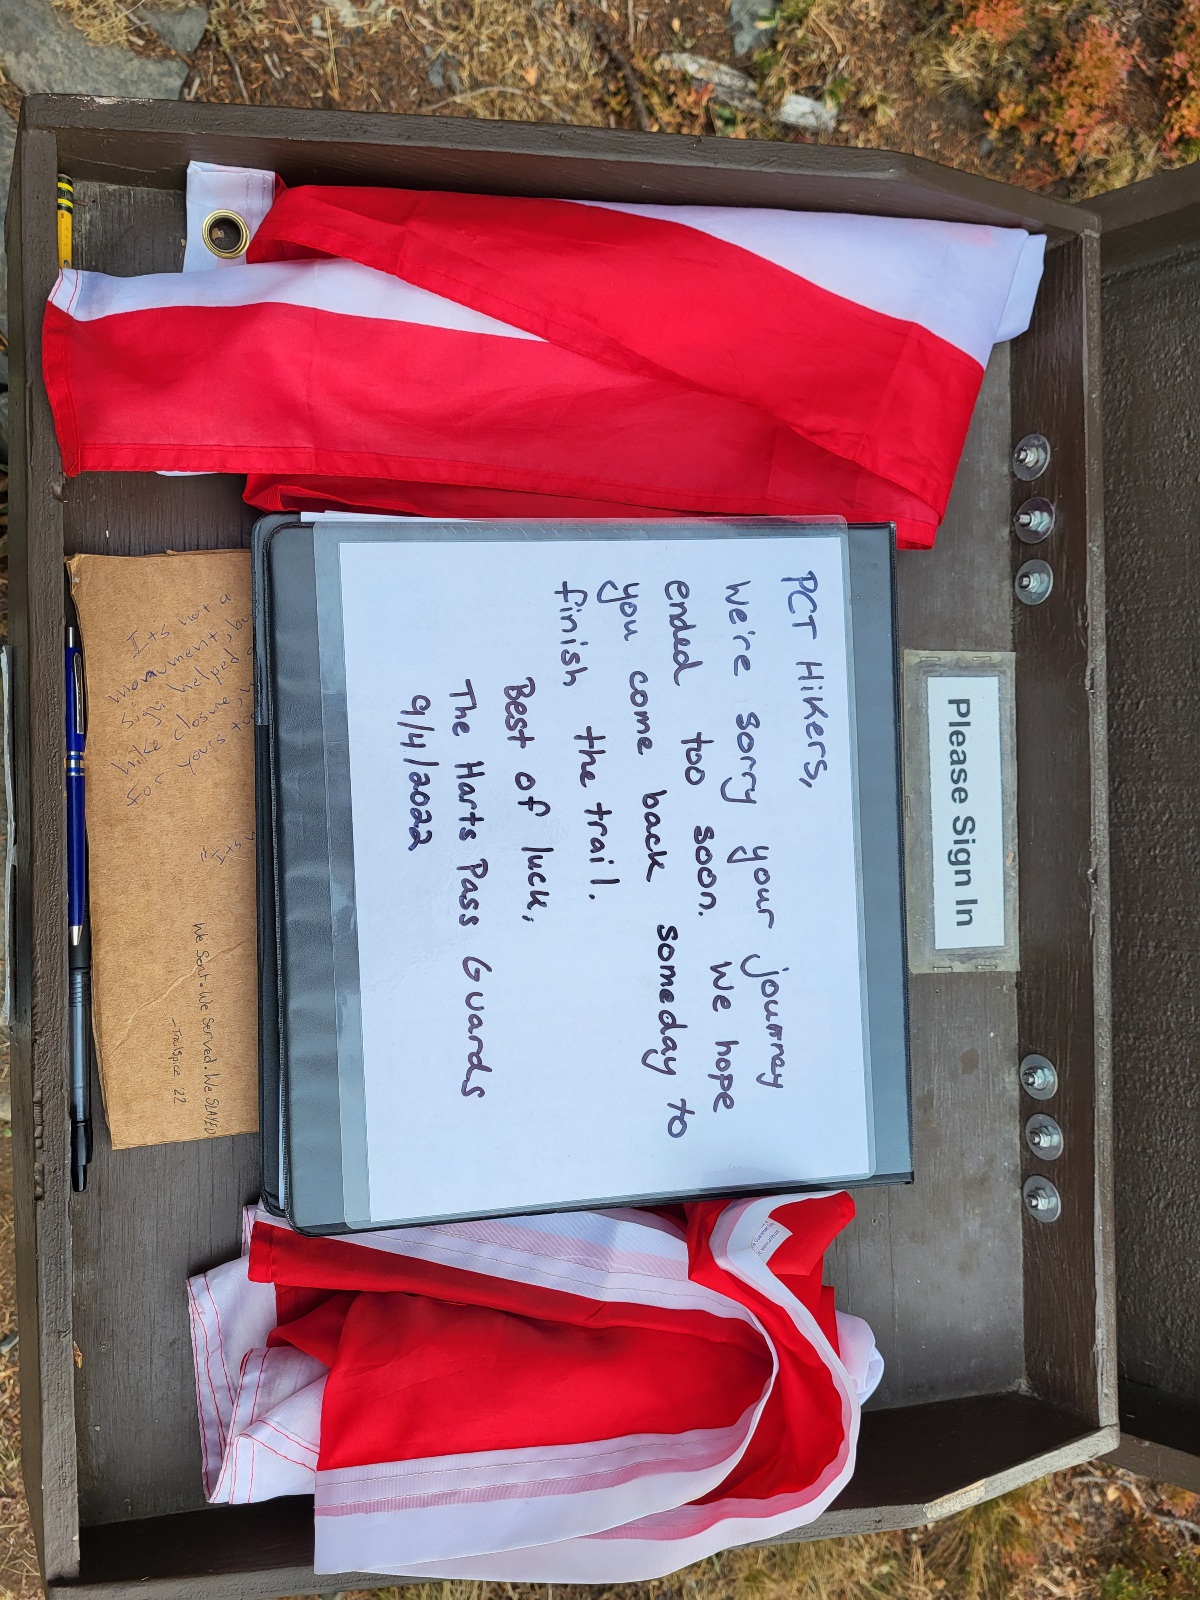 Please Sign In
PCT Hikers,
We're sorry your journey
ended too soon. We hope
you come back someday to
finish the trail.
Best of luck,
The Harts Pass Guards
9/4/2022
Its not a
monument, bu
sign helped
hike closure,
for yours too
"Its
We Sent. We Served. We SLAYED
-Trailspice 22